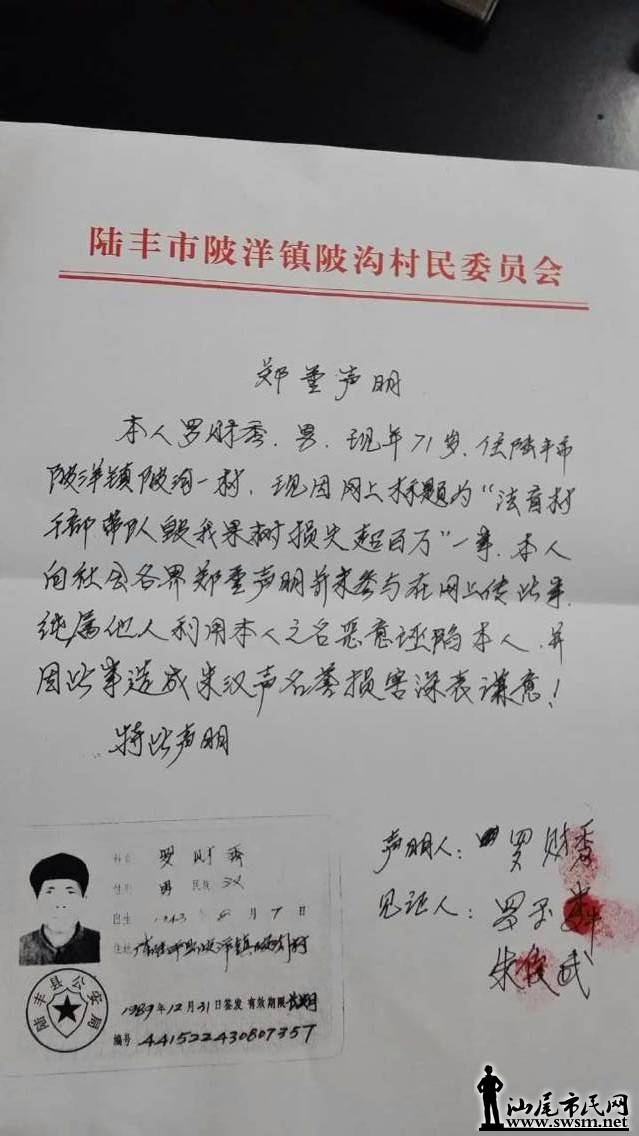 陆丰市陂洋镇陂沟村民委员会
郑重声明
本人罗财秀、男、现年71岁、住陆丰市
陂洋镇陂沟一村、现因网上标题为“法育村
干部带队毁我果树损失超百万”一事、本人
向社会各界郑重声明并未参与在网上传此事、
纯属他人利用本人之名恶意诬陷本人、并
因此事造成朱汉声名誉损害深表谦意！
特此声明
声明人：罗财秀
见证人：罗
朱俊武
姓名 罗财秀
性别 男 民族 汉
出生 1943年8月7日
住址 陂洋镇
陆丰县公安局
1989年12月31日签发 有效期限长期
编号 441522430807357
汕尾市民网
www.swsm.net